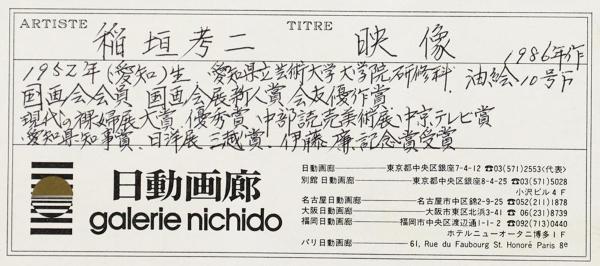 ARTISTE 稲垣考二 TITRE 映像 1986年作
1952年(愛知)生. 愛知県立芸術大学大学院研修科. 油絵10号F
国画会会員 国画会展新人賞 会友優作賞
現代の裸婦展大賞 優秀賞 中部読売美術展 中京テレビ賞
愛知県知事賞. 日洋展三越賞. 伊藤廉記念賞受賞
日動画廊
galerie nichido
日動画廊――東京都中央区銀座7-4-12 ☎03(571)2553<代表>
別館 日動画廊――東京都中央区銀座8-4-25 ☎03(571)5028
小沢ビル4F
名古屋日動画廊――名古屋市中区錦2-9-25 ☎052(211)1878
大阪日動画廊――大阪市東区北浜3-41 ☎06(231)8739
福岡日動画廊――福岡市中央区渡辺通1-1-2 ☎092(713)0440
ホテルニューオータニ博多1F
パリ日動画廊――61, Rue du Faubourg St. Honoré Paris 8e